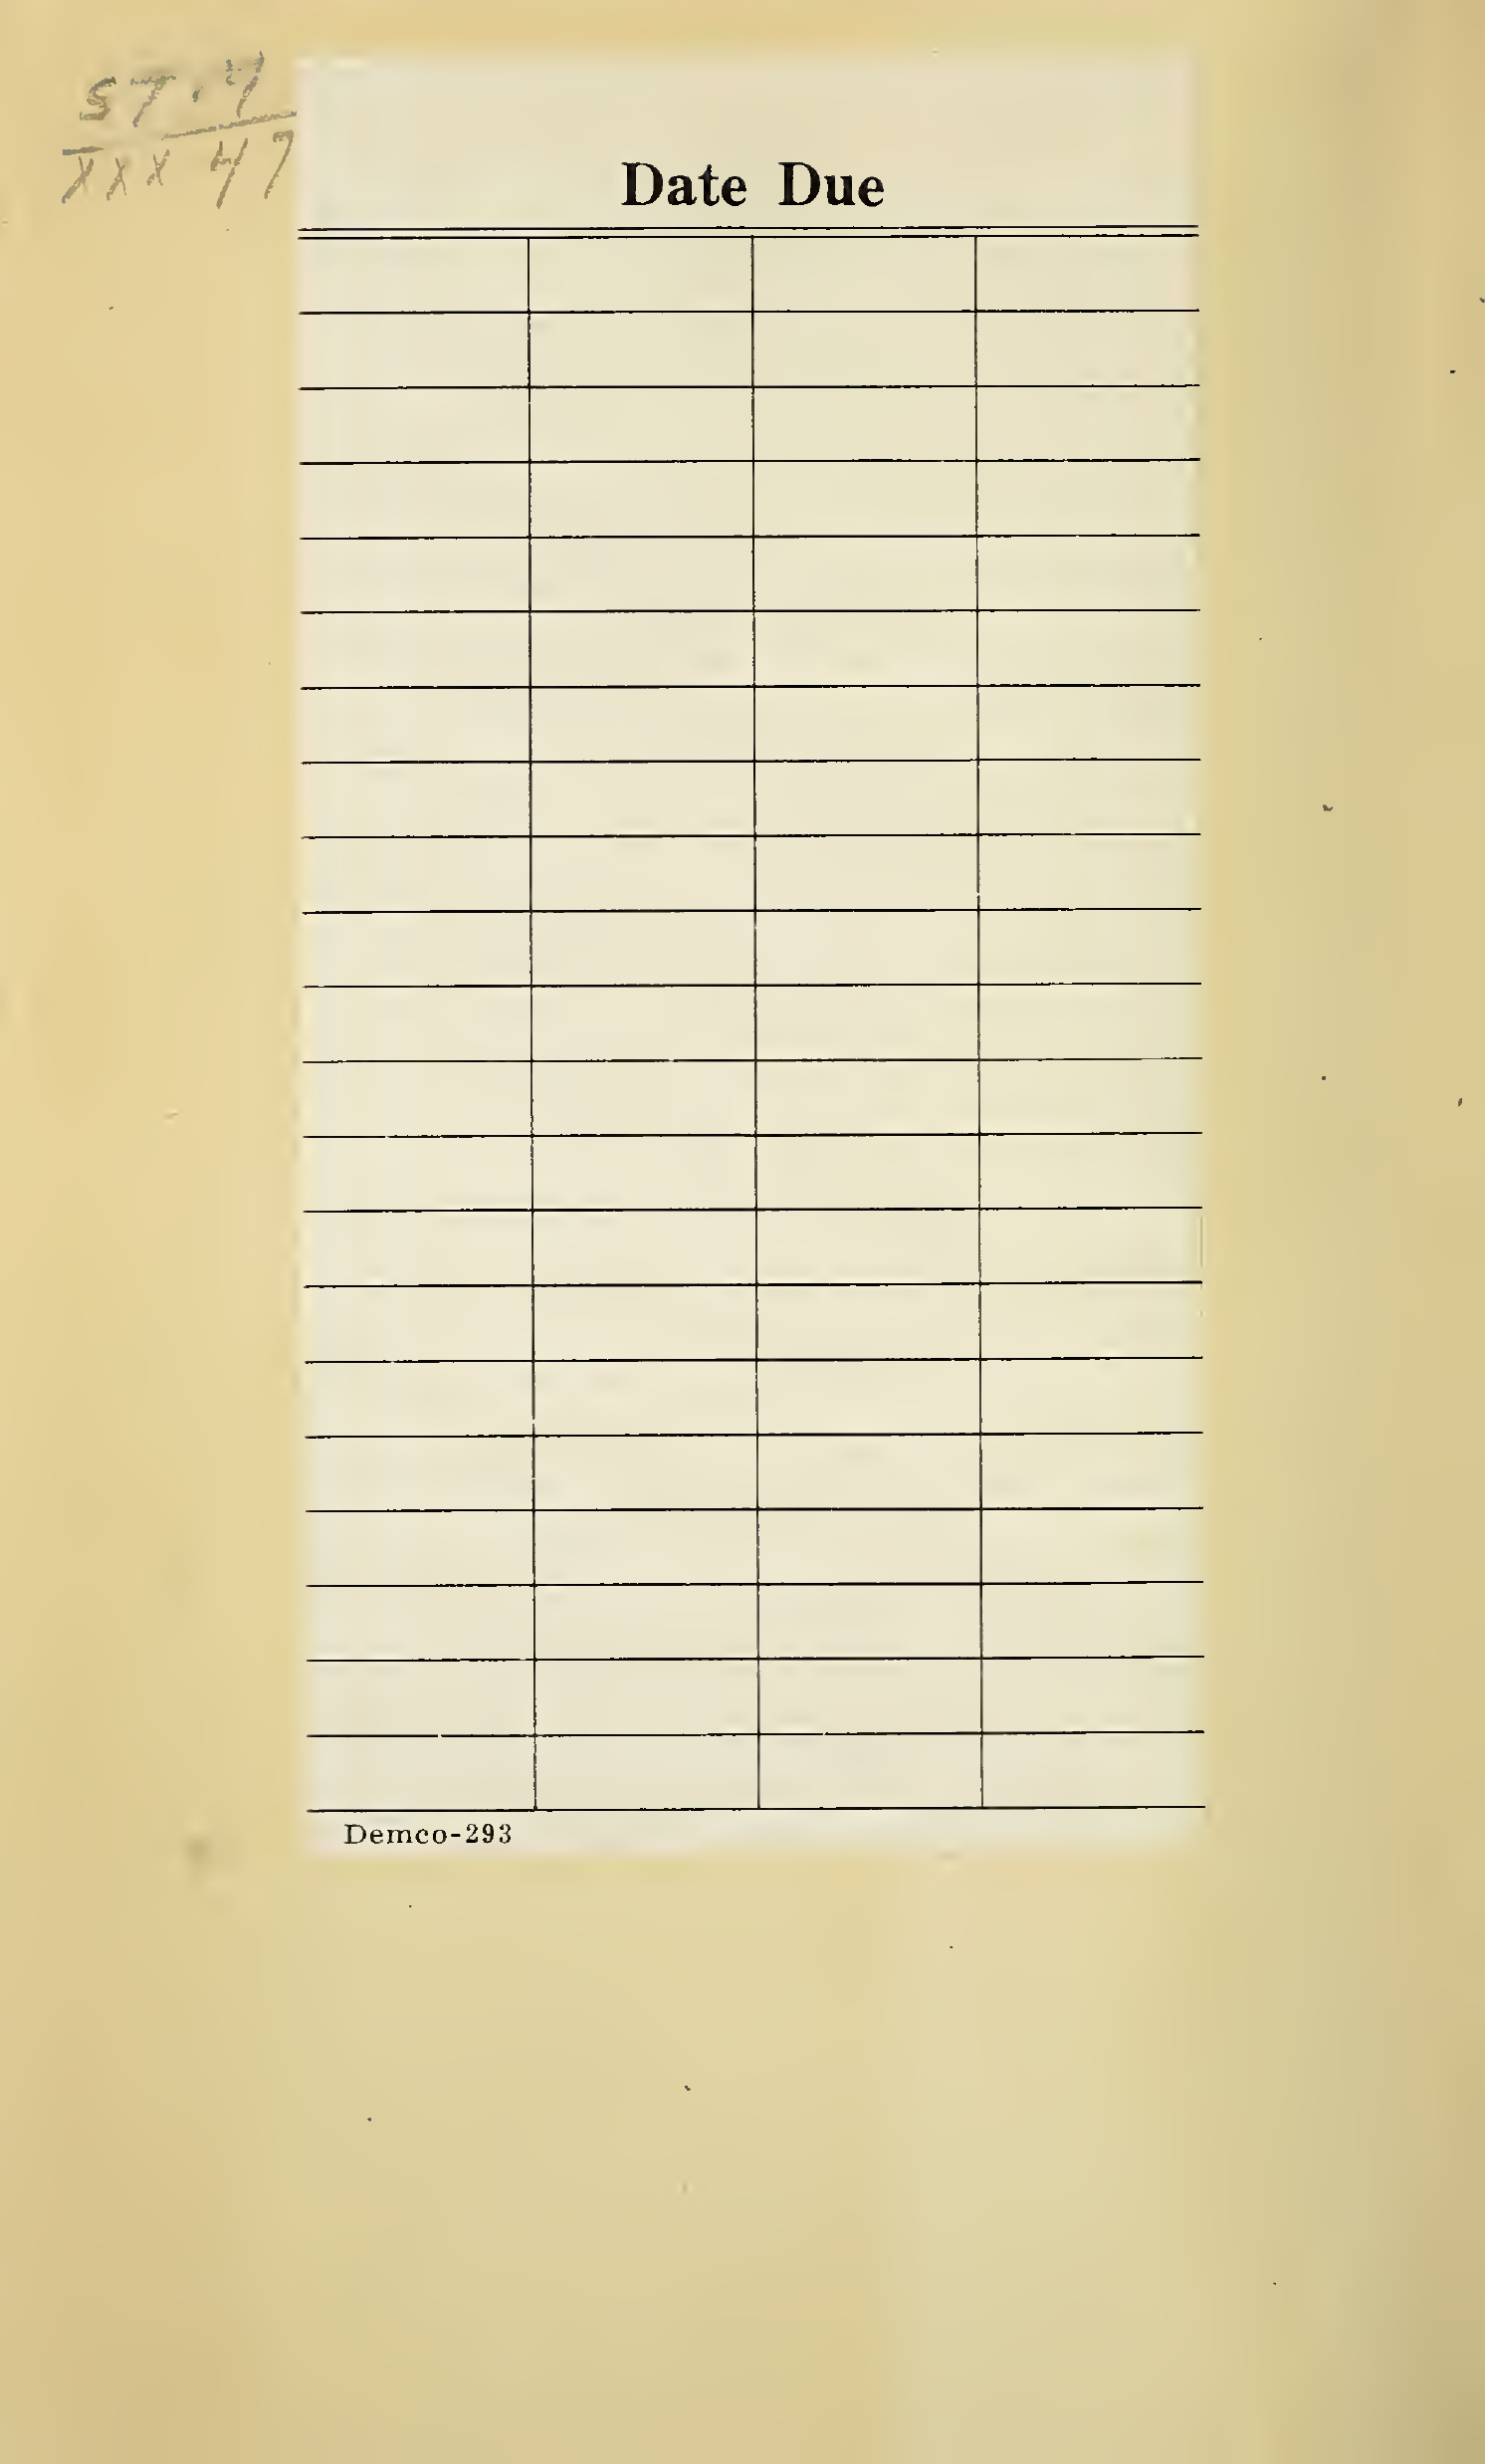 57.4
XXX 47
Date Due
Demco-293